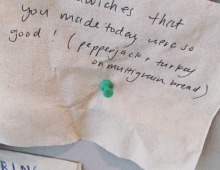 dwiches that
you made today were so
good! (pepperjack + turkey
on multigrain bread)
RING